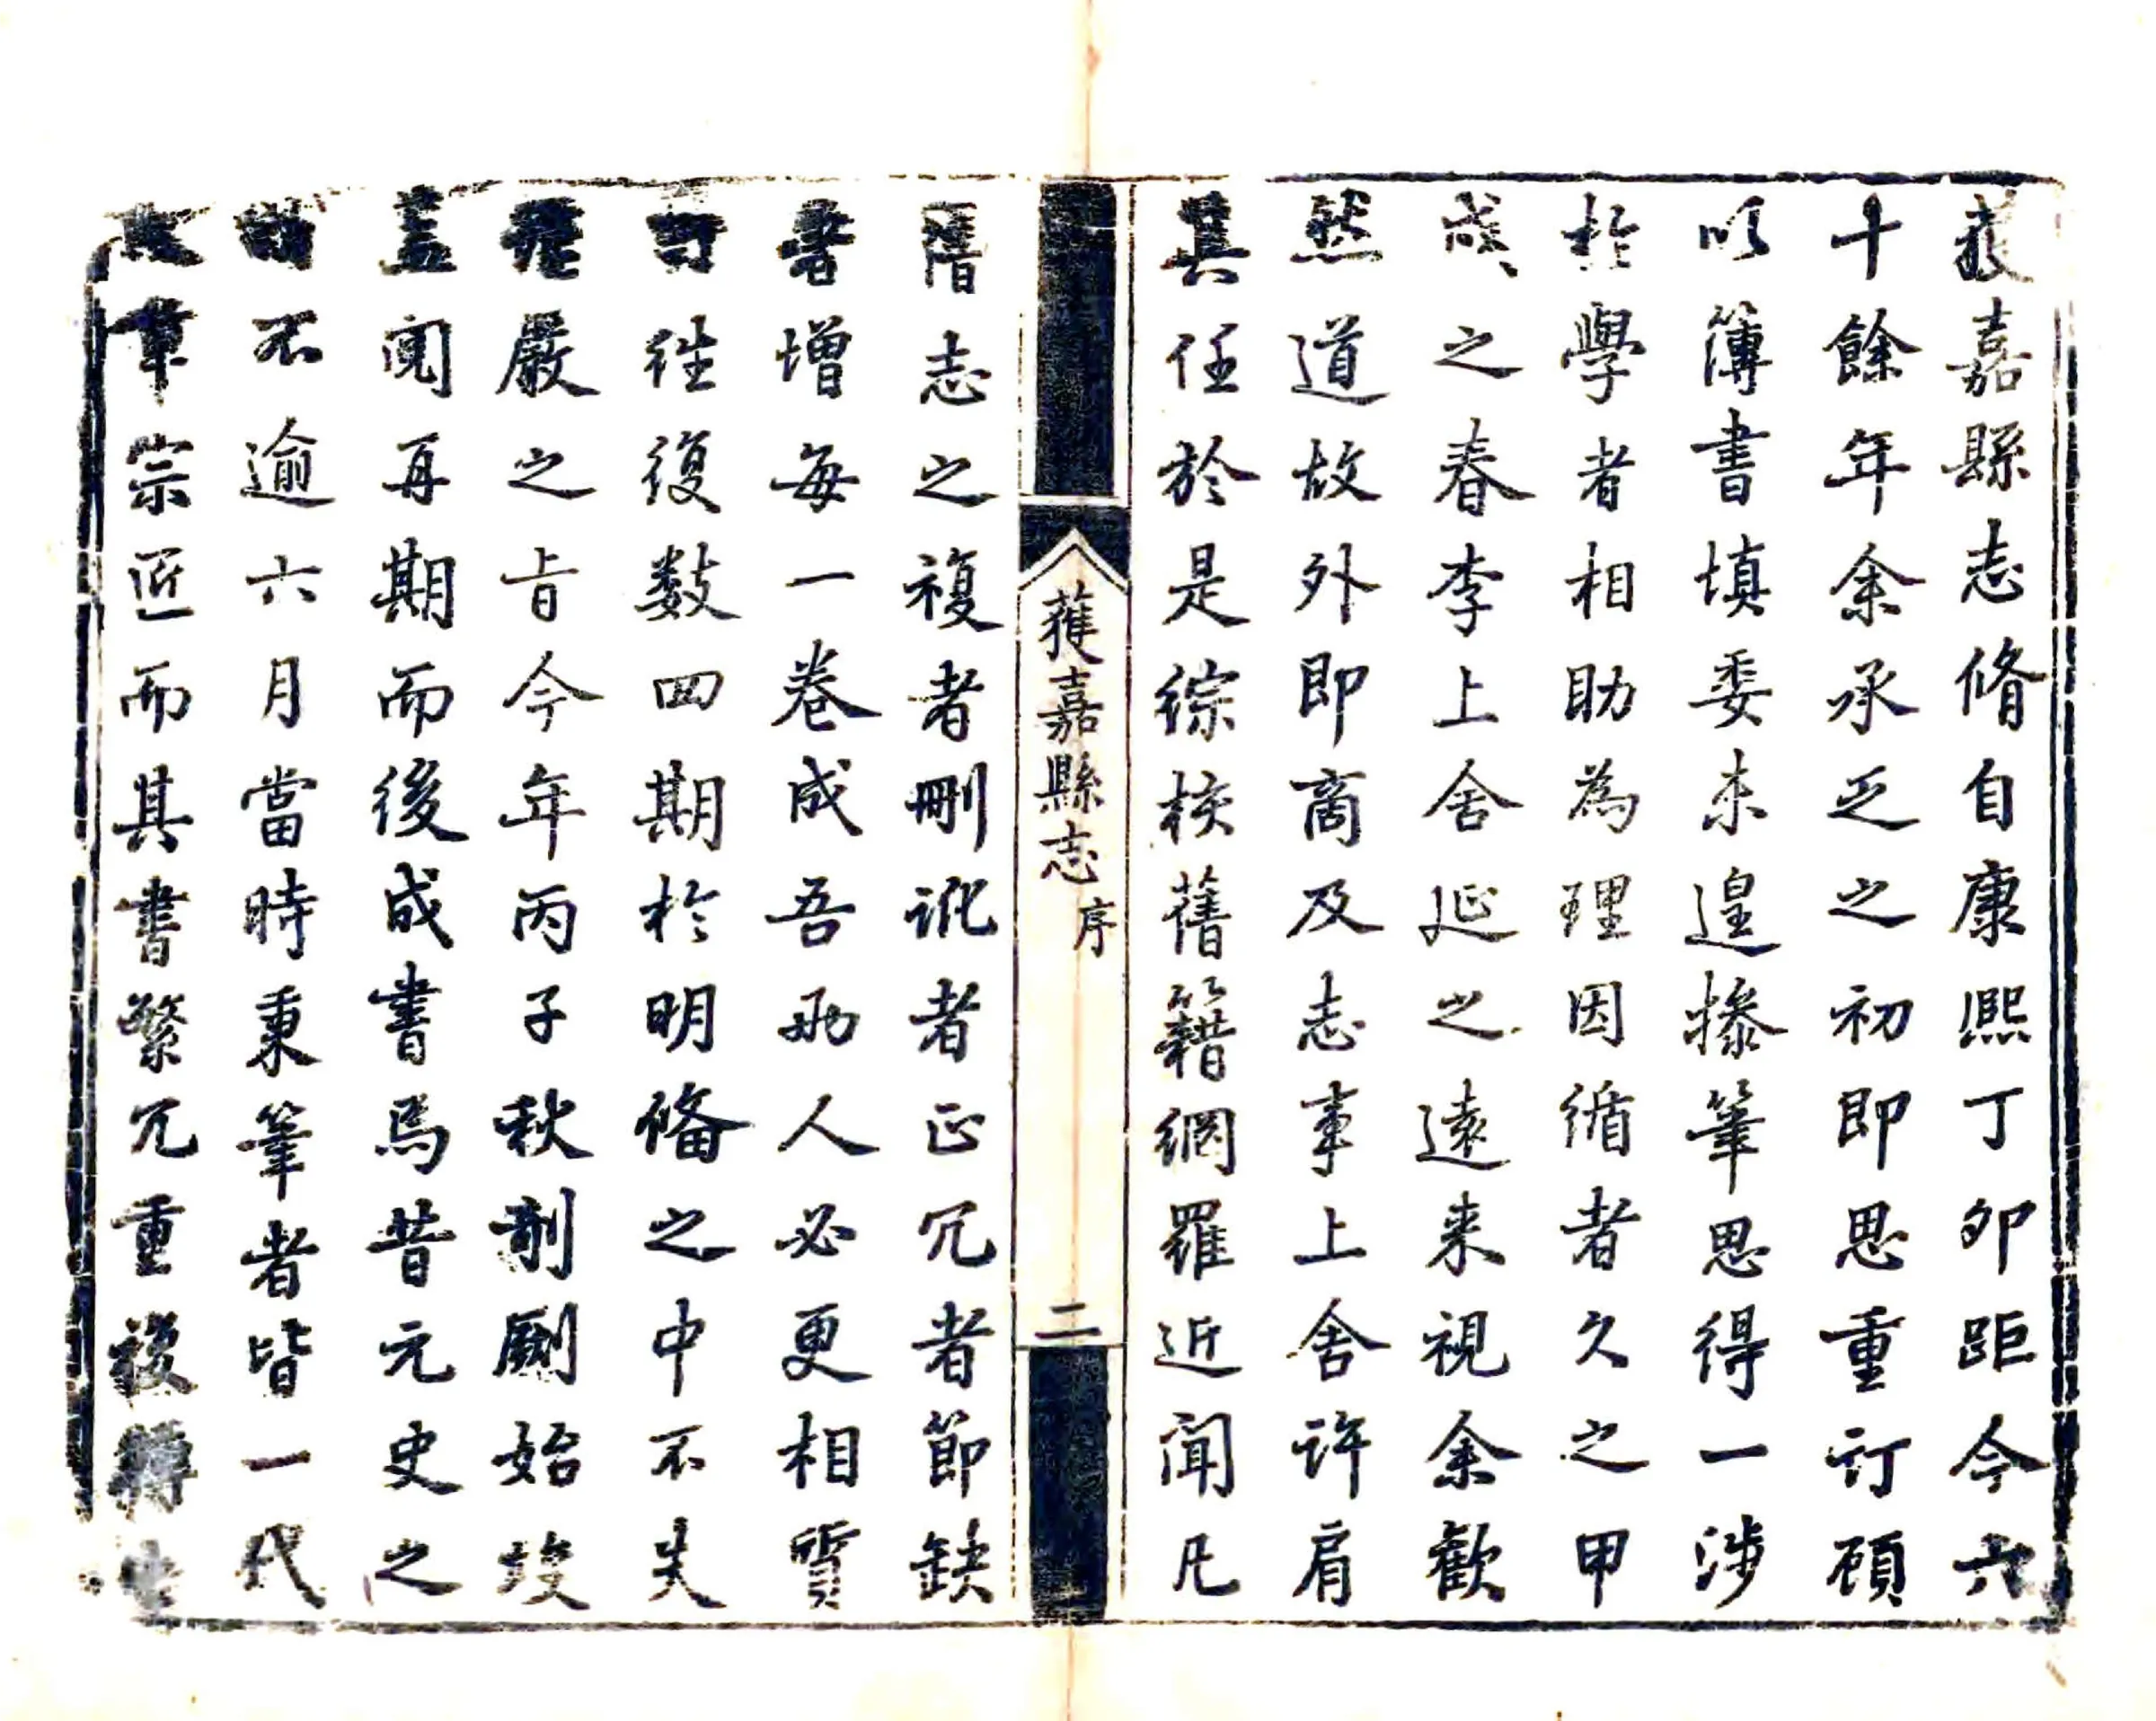 獲嘉縣志脩自康熙丁卯距今六
十餘年余承乏之初即思重訂顧
以簿書填委未遑搽筆思得一涉
扵學者相助為理因循者久之甲
戌之春李上舍延之遠来視余歡
然道故外即商及志事上舍許肩
其任於是綜核舊籍網羅近聞凡
獲嘉縣志 序
二
舊志之複者刪訛者正冗者節缺
者增每一卷成吾兩人必更相質
訂往復数四期扵明備之中不失
嚴之旨今年丙子秋剞劂始竣
盖閱再期而後成書焉昔元史之
不逾六月當時秉筆者皆一代
宗匠而其書繁冗重複